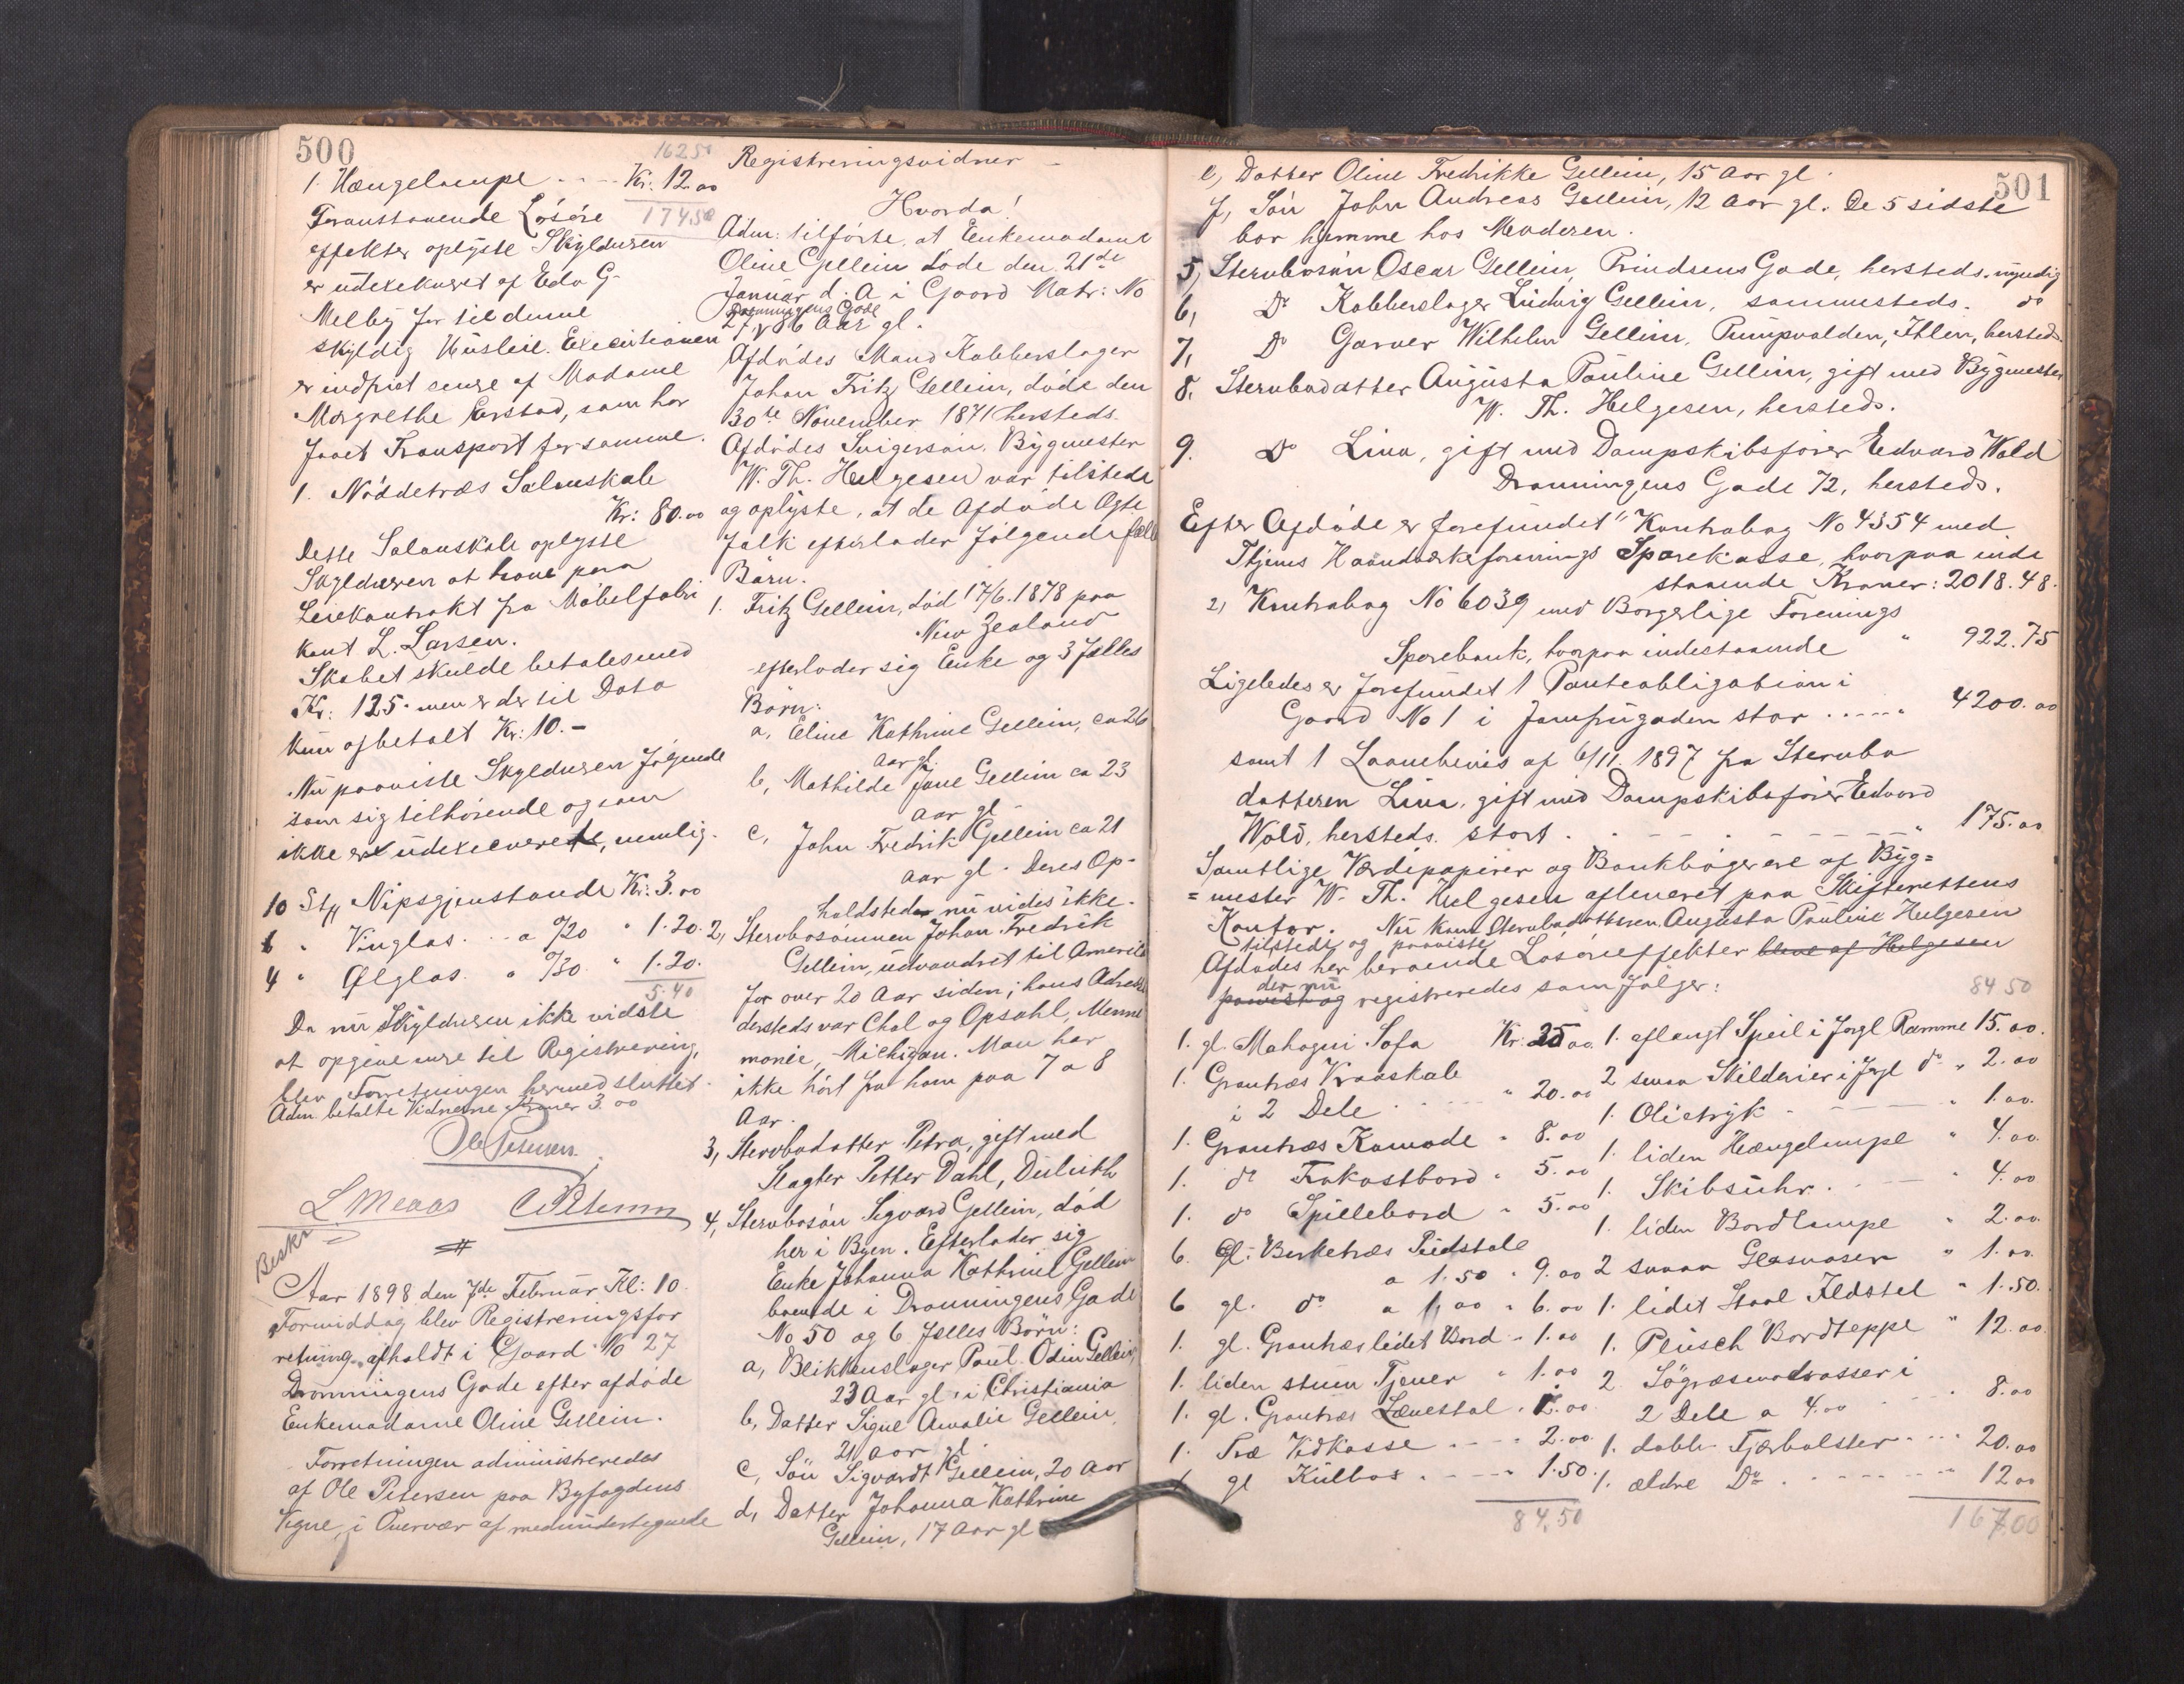 500
1625⁰
1. Hængelampe .. .. Kr: 12.00
17450
Foranstaaende Løsøre
effekter oplyste Skylderen
er udexekveret af Edv G.
Melby for til denne
skyldig Husleie. Executionen
er indfriet senere af Madame
Margrethe Erstad, som har
faaet Transport for samme.
1. Nøddetræs Salonskab
Kr: 80.00
Dette Salonskab oplyste
Skylderen at have paa
Leiekontrakt fra Møbelfabri
kant L. Larsen.
Skabet skulde betales med
Kr: 125.- men er der til Dato
kun afbetalt Kr: 10.-
Nu paaviste Skylderen følgende
som sig tilhørende og som
ikke er udexekverede, nemlig.
10 Stk Nipsgjenstande Kr: 3.00
6 " Vinglas. .. a 0/20 " 1.20.
4 " Ølglas. a 0/30 " 1.20.
5.40
Da nu Skylderen ikke vidste
at opgive mere til Registrering,
blev Forretningen hermed sluttet.
Adm. betalte Vidnerne Kroner 3.00
Ole Petersen.
L Meaas C Petersen
Besk.
Aar 1898 den 7de Februar Kl: 10.
Formiddag blev Registreringsfor
retning afholdt i Gaard No 27
Dronningens Gade efter afdøde
Enkemadame Oline Gellein.
Forretningen administreredes
af Ole Petersen paa Byfogdens
Vegne, i Overvær af medundertegnede
Registreringsvidner –
Hvorda!
Adm: tilførte, at Enkemadame
Oline Gellein døde den 21de
Januar d. A i Gaard Matr: No
Dronningens Gade
27, 86 Aar gl.
Afdødes Mand Kobberslager
Johan Fritz Gellein, døde den
30te November 1871 hersteds.
Afdødes Svigersøn, Bygmester
W. Th. Helgesen var tilstede
og oplyste, at de Afdøde Ægte
folk efterlader følgende fælles
Børn.
1. Fritz Gellein, død 17/6. 1878 paa
New Zealand
efterlader sig Enke og 3 fælles
Børn:
a, Eline Kathrine Gellein, ca 26
Aar gl.
b, Mathilde Jane Gellein ca 23
Aar gl –
c, John Fredrik Gellein ca 21
Aar gl. Deres Op-
holdsteder nu vides ikke.
2, Stervbosønnen Johan Fredrik
Gellein, udvandret til Amerika
for over 20 Aar siden; hans Adresse
dersteds var Chal og Opsahl, Menno
monie, Michigan. Man har
ikke hørt fra ham paa 7 a 8
Aar.
3, Stervbodatter Petra, gift med
Slagter Petter Dahl, Duluth
4, Stervbosøn Sigvard Gellein, død
her i Byen. Efterlader sig
Enke Johanna Kathrine Gellein
boende i Dronningens Gade
No 50 og 6 fælles Børn:
a, Blikkenslager Paul Odin Gellein,
23 Aar gl. i Christiania
b, Datter Signe Amalie Gellein,
21 Aar gl.
c, Søn Sigvardt Gellein, 20 Aar
d, Datter Johanna Kathrine
Gellein, 17 Aar gl
501
e, Datter Oline Fredrikke Gellein, 15 Aar gl.
f, Søn John Andreas Gellein, 12 Aar gl. De 5 sidste
bor hjemme hos Moderen.
5, Stervbosøn Oscar Gellein, Prindsens Gade, hersteds. myndig
6, Do Kobberslager Ludvig Gellein, sammesteds. do
7, Do Garver Wilhelm Gellein, Pumpvolden, Ihlen, hersteds.
8. Stervbodatter Augusta Pauline Gellein, gift med Bygmester
W. Th. Helgesen, hersteds.
9. Do Lina, gift med Dampskibsfører Edvard Wold
Dronningens Gade 72, hersteds.
Efter Afdøde er forefundet 1, Kontrabog No 4354 med
Thjems Haandværkerforenings Sparekasse, hvorpaa inde
staaende Kroner: 2018.48.
2, Kontrabog No 6039 med Borgerlige Forenings
Sparebank, hvorpaa indestaaende " 922.75
Ligeledes er forefundet 1 Panteobligation i
Gaard No 1 i Jomfrugaden stor ..... " 4200.00
samt 1 Laanebevis af 6/11. 1897 fra Stervbo
datteren Lina, gift med Dampskibsfører Edvard
Wold, hersteds, stort . . – – – – – – – " 175.00
Samtlige Værdipapirer og Bankbøger ere af Byg=
=mester W. Th. Helgesen afleveret paa Skifterettens
Kontor. Nu kom Stervbodatteren Augusta Pauline Helgesen
tilstede og paaviste
Afdødes her beroende Løsøreeffekter bleve af Helgesen
der nu
paavist og registreredes som følger:
1. gl. Mahogni Sofa Kr: 25.00
1. Grantræs Kraaskab
i 2 Dele . . . . . . " 20.00
1. Grantræs Komode " 8.00
1. do Frokostbord " 5.00
1. do Spillebord " 5.00
6. gl. Birketræs Pudstole
a 1.50 " 9.00
6 gl. do a 1,00 " 6.00
1. gl. Grantræs lidet Bord " 1.00
1. liden stum Tjener " 1.00
1. gl. Grantræs Lænestol . .00
1. Træ Vedkasse .. .. " 2.00
1 gl Kulbox . .. – " 1.50.
84.50
84 50
1. aflangt Speil i forgl Ramme 15.00.
2 smaa Skilderier i forgl do " 2.00
1. Olietryk – – – " 1.00.
1. liden Hængelampe " 4.00.
1. Skibsuhr. . – – " 4.00
1. liden Bordlampe " 2.00.
2 smaa Glasvaser " 1.00.
1. lidet Staal Ildstel " 1.50.
1. Plusch Bordteppe " 12.00.
2 Søgræsmadrasser i
2 Dele a 4.00 . " 8.00
1. dobb. Fjærbolster .. .. 20.00
1. ældre Do . . . . . . – " 12.00
167.00